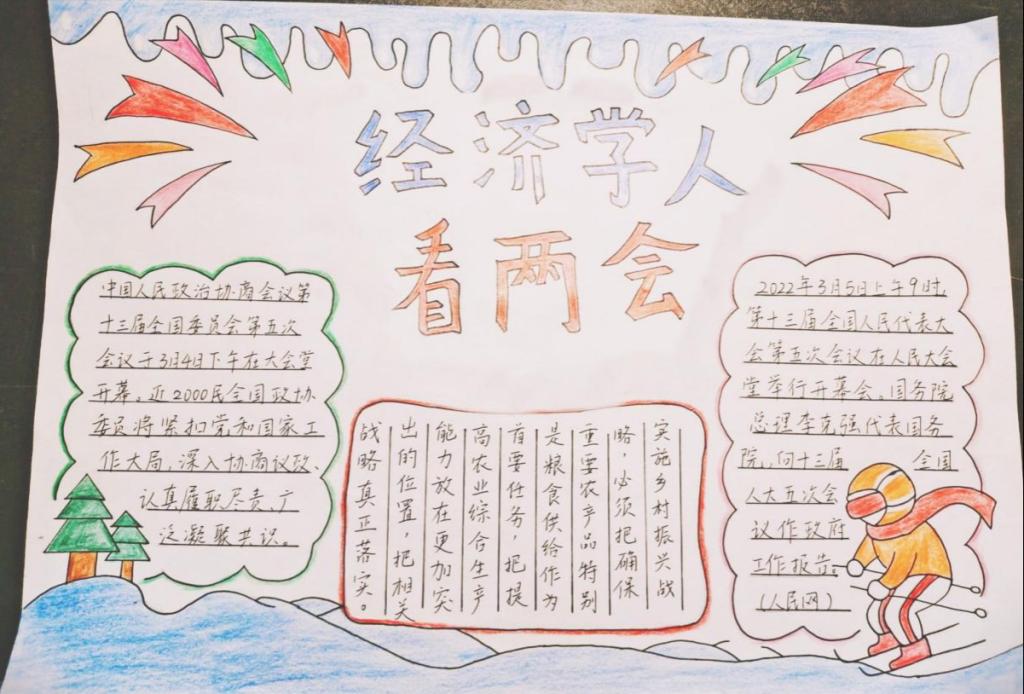 经济学人
看两会
中国人民政治协商会议第
十三届全国委员会第五次
会议于3月4日下午在大会堂
开幕。近2000民全国政协
委员将紧扣党和国家工
作大局,深入协商议政、
认真履职尽责、广
泛凝聚共识。
实施乡村振兴战
略,必须把确保
重要农产品特别
是粮食供给作为
首要任务,把提
高农业综合生产
能力放在更加突
出的位置,把相关
战略真正落实。
2022年3月5日上午9时,
第十三届全国人民代表大
会第五次会议在人民大会
堂举行开幕会。国务院
总理李克强代表国务
院,向十三届 全国
人大五次会
议作政府
工作报告。
(人民网)